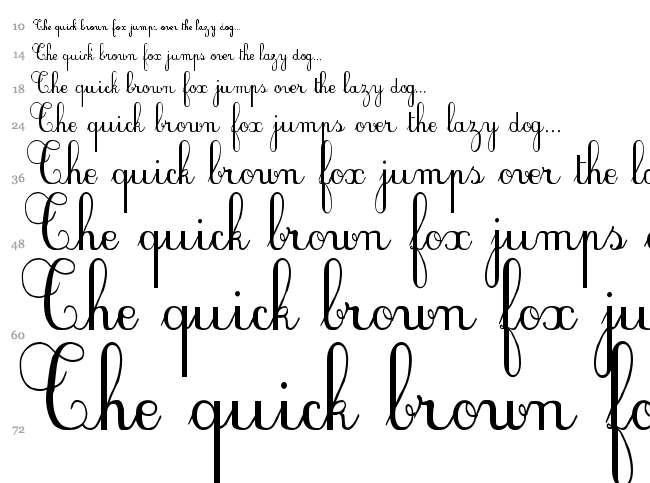 10 The quick brown fox jumps over the lazy dog...
14 The quick brown fox jumps over the lazy dog...
18 The quick brown fox jumps over the lazy dog...
24 The quick brown fox jumps over the lazy dog...
36 The quick brown fox jumps over the la
48 The quick brown fox jumps
60 The quick brown fox ju
72 The quick brown fo